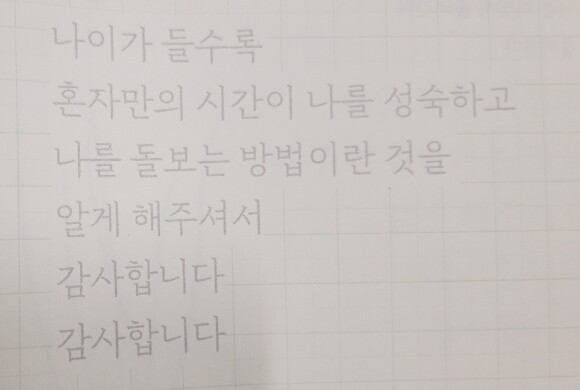 나이가 들수록
혼자만의 시간이 나를 성숙하고
나를 돌보는 방법이란 것을
알게 해주셔서
감사합니다
감사합니다